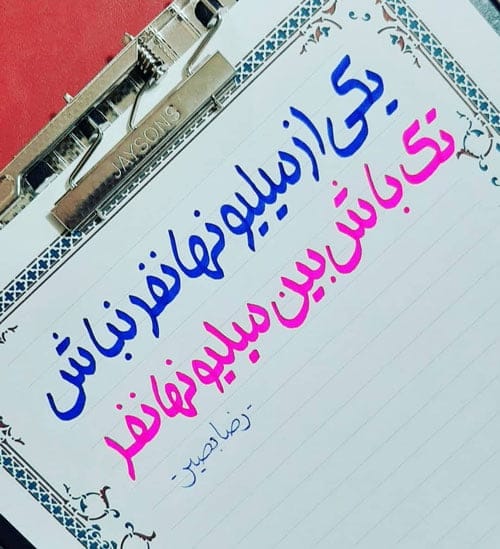 JAYSONS
یکی از میلیونها نفر نباش
تک باش بین میلیونها نفر
رضا بصیر